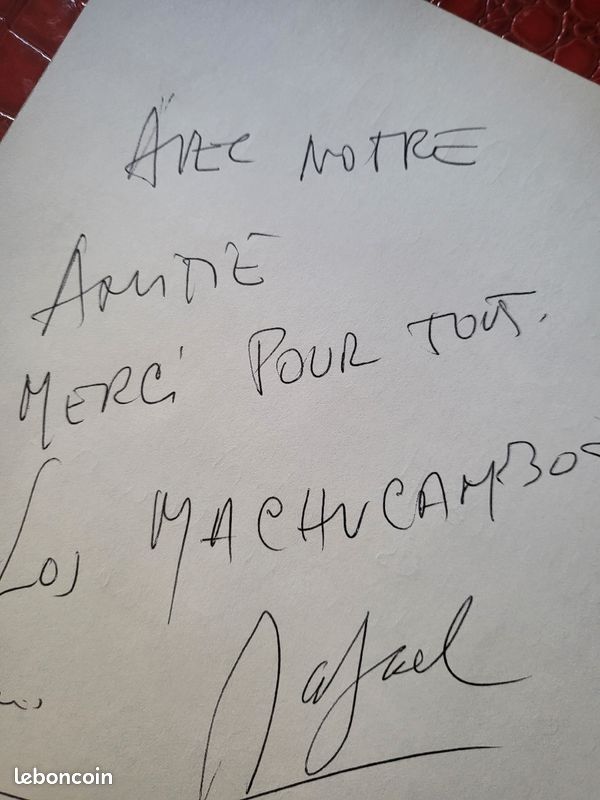 AVEC NOTRE
AMITIÉ
MERCI POUR TOUT.
Los MACHUCAMBOS
Rafael
leboncoin